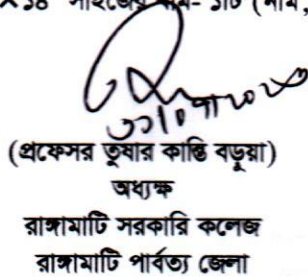 ×১৪ সাইজের খাম- ১টি (নাম,
(প্রফেসর তুষার কান্তি বড়ুয়া)
অধ্যক্ষ
রাঙ্গামাটি সরকারি কলেজ
রাঙ্গামাটি পার্বত্য জেলা